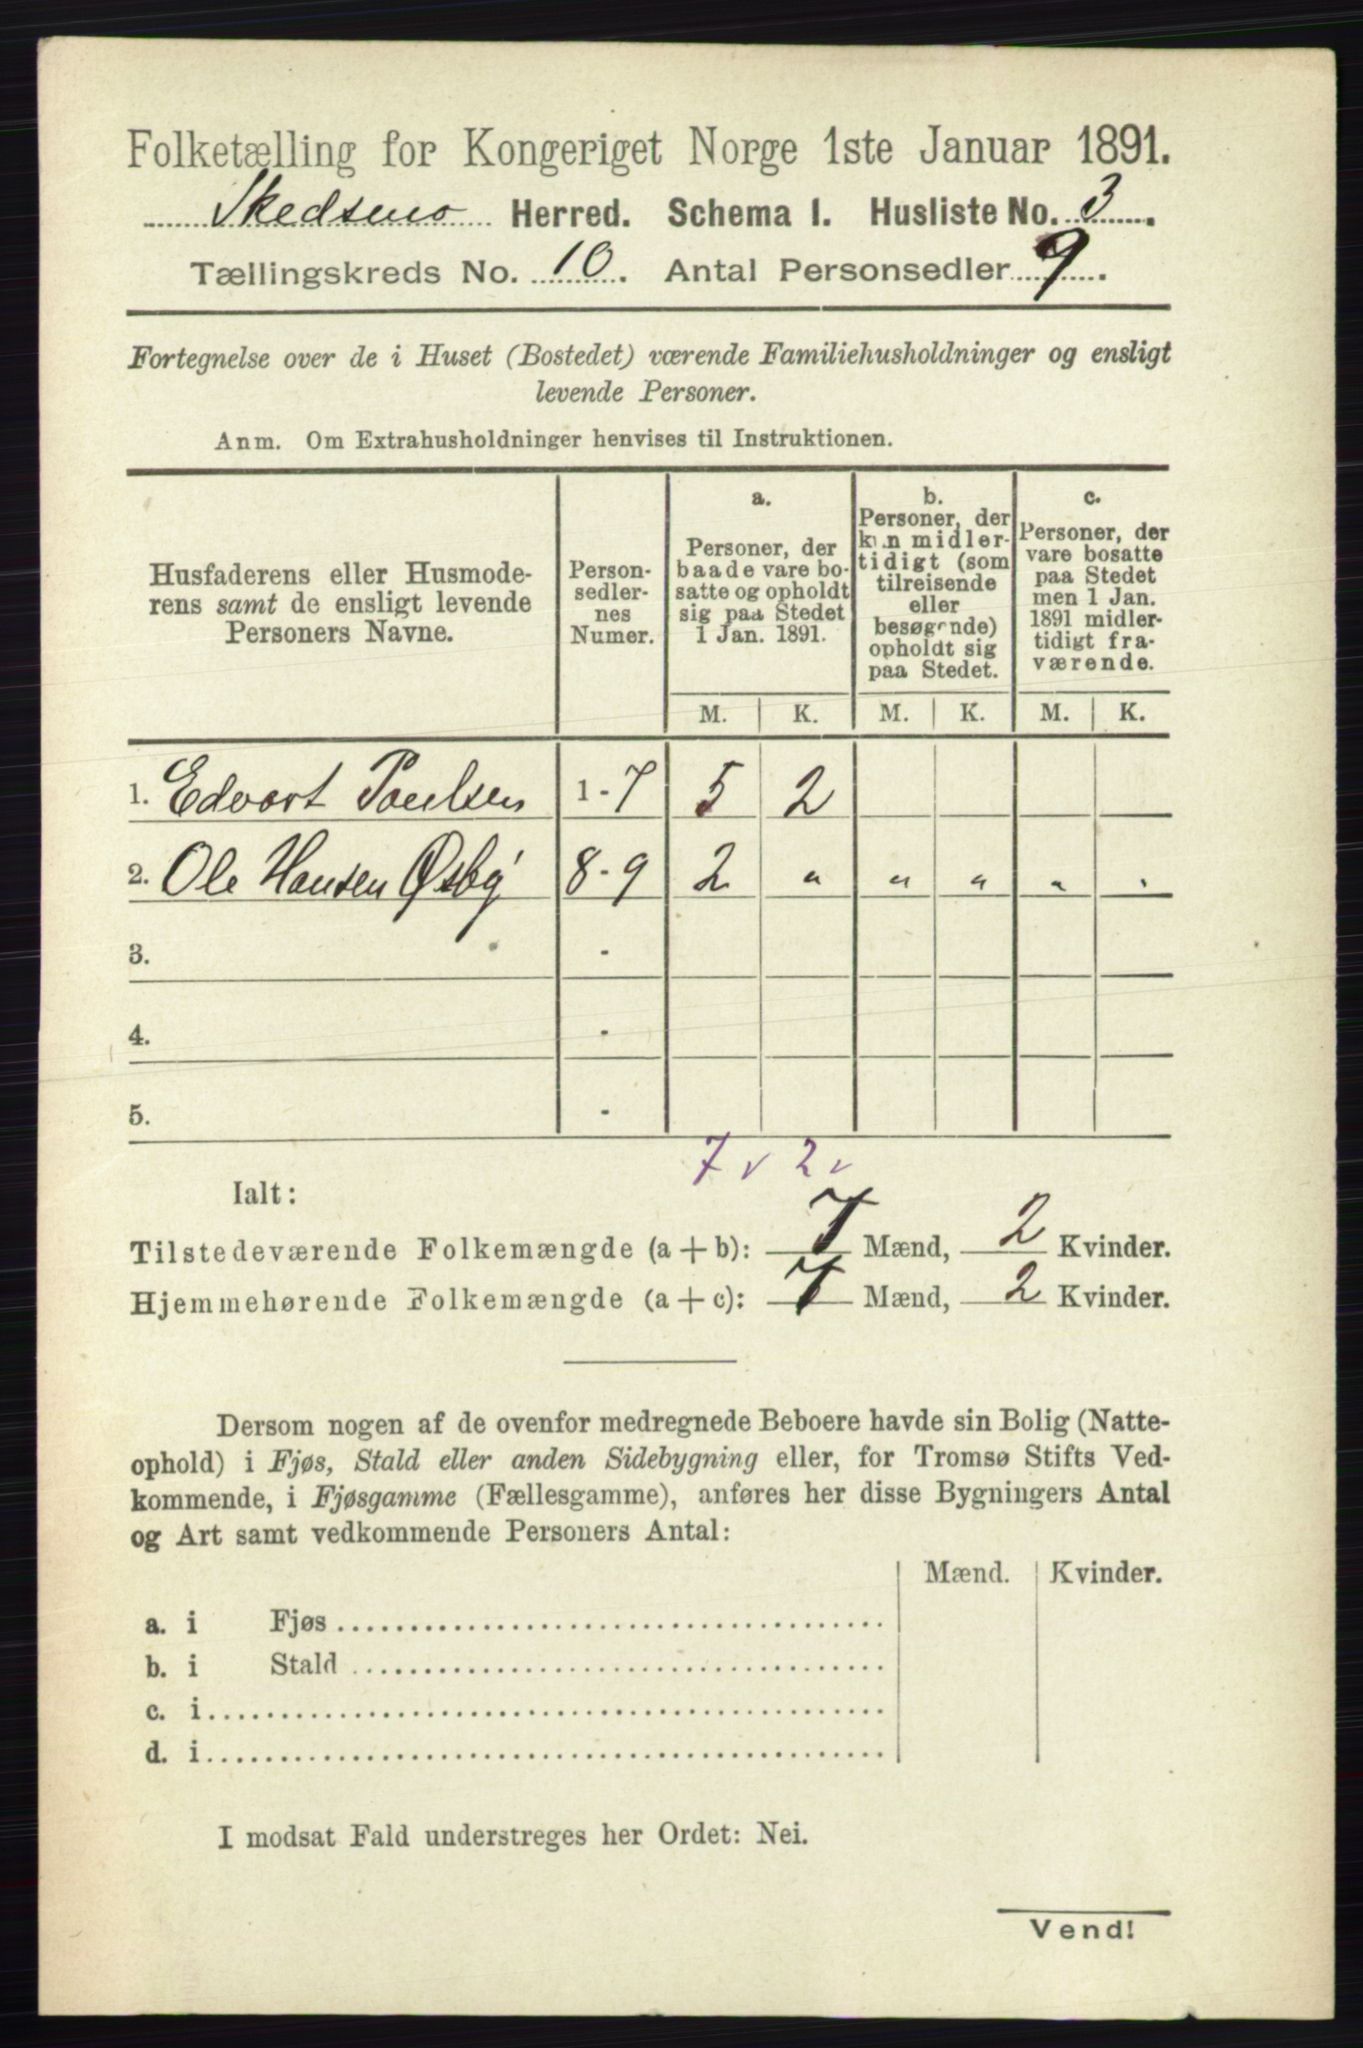 Folketælling for Kongeriget Norge 1ste Januar 1891.
Skedsmo Herred. Schema I. Husliste No. 3.
Tællingskreds No. 10. Antal Personsedler 9.
Fortegnelse over de i Huset (Bostedet) værende Familiehusholdninger og ensligt
levende Personer.
Anm. Om Extrahusholdninger henvises til Instruktionen.
Husfaderens eller Husmode-
rens samt de ensligt levende
Personers Navne.
Person-
sedler-
nes
Numer.
a.
Personer, der
baade vare bo-
satte og opholdt
sig paa Stedet
1 Jan. 1891.
b.
Personer, der
kun midler-
tidigt (som
tilreisende
eller
besøgende)
opholdt sig
paa Stedet.
c.
Personer, der
vare bosatte
paa Stedet
men 1 Jan.
1891 midler-
tidigt fra-
værende.
M. K. M. K. M. K.
1. Edvart Paulsen 1-7 5 2
2. Ole Hansen Øsby 8-9 2 " " " " "
3. -
4. -
5. -
7 v 2 v
Ialt:
Tilstedeværende Folkemængde (a + b): 7 Mænd, 2 Kvinder.
Hjemmehørende Folkemængde (a + c): 7 Mænd, 2 Kvinder.
Dersom nogen af de ovenfor medregnede Beboere havde sin Bolig (Natte-
ophold) i Fjøs, Stald eller anden Sidebygning eller, for Tromsø Stifts Ved-
kommende, i Fjøsgamme (Fællesgamme), anføres her disse Bygningers Antal
og Art samt vedkommende Personers Antal:
Mænd. Kvinder.
a. i Fjøs
b. i Stald
c. i
d. i
I modsat Fald understreges her Ordet: Nei.
Vend!